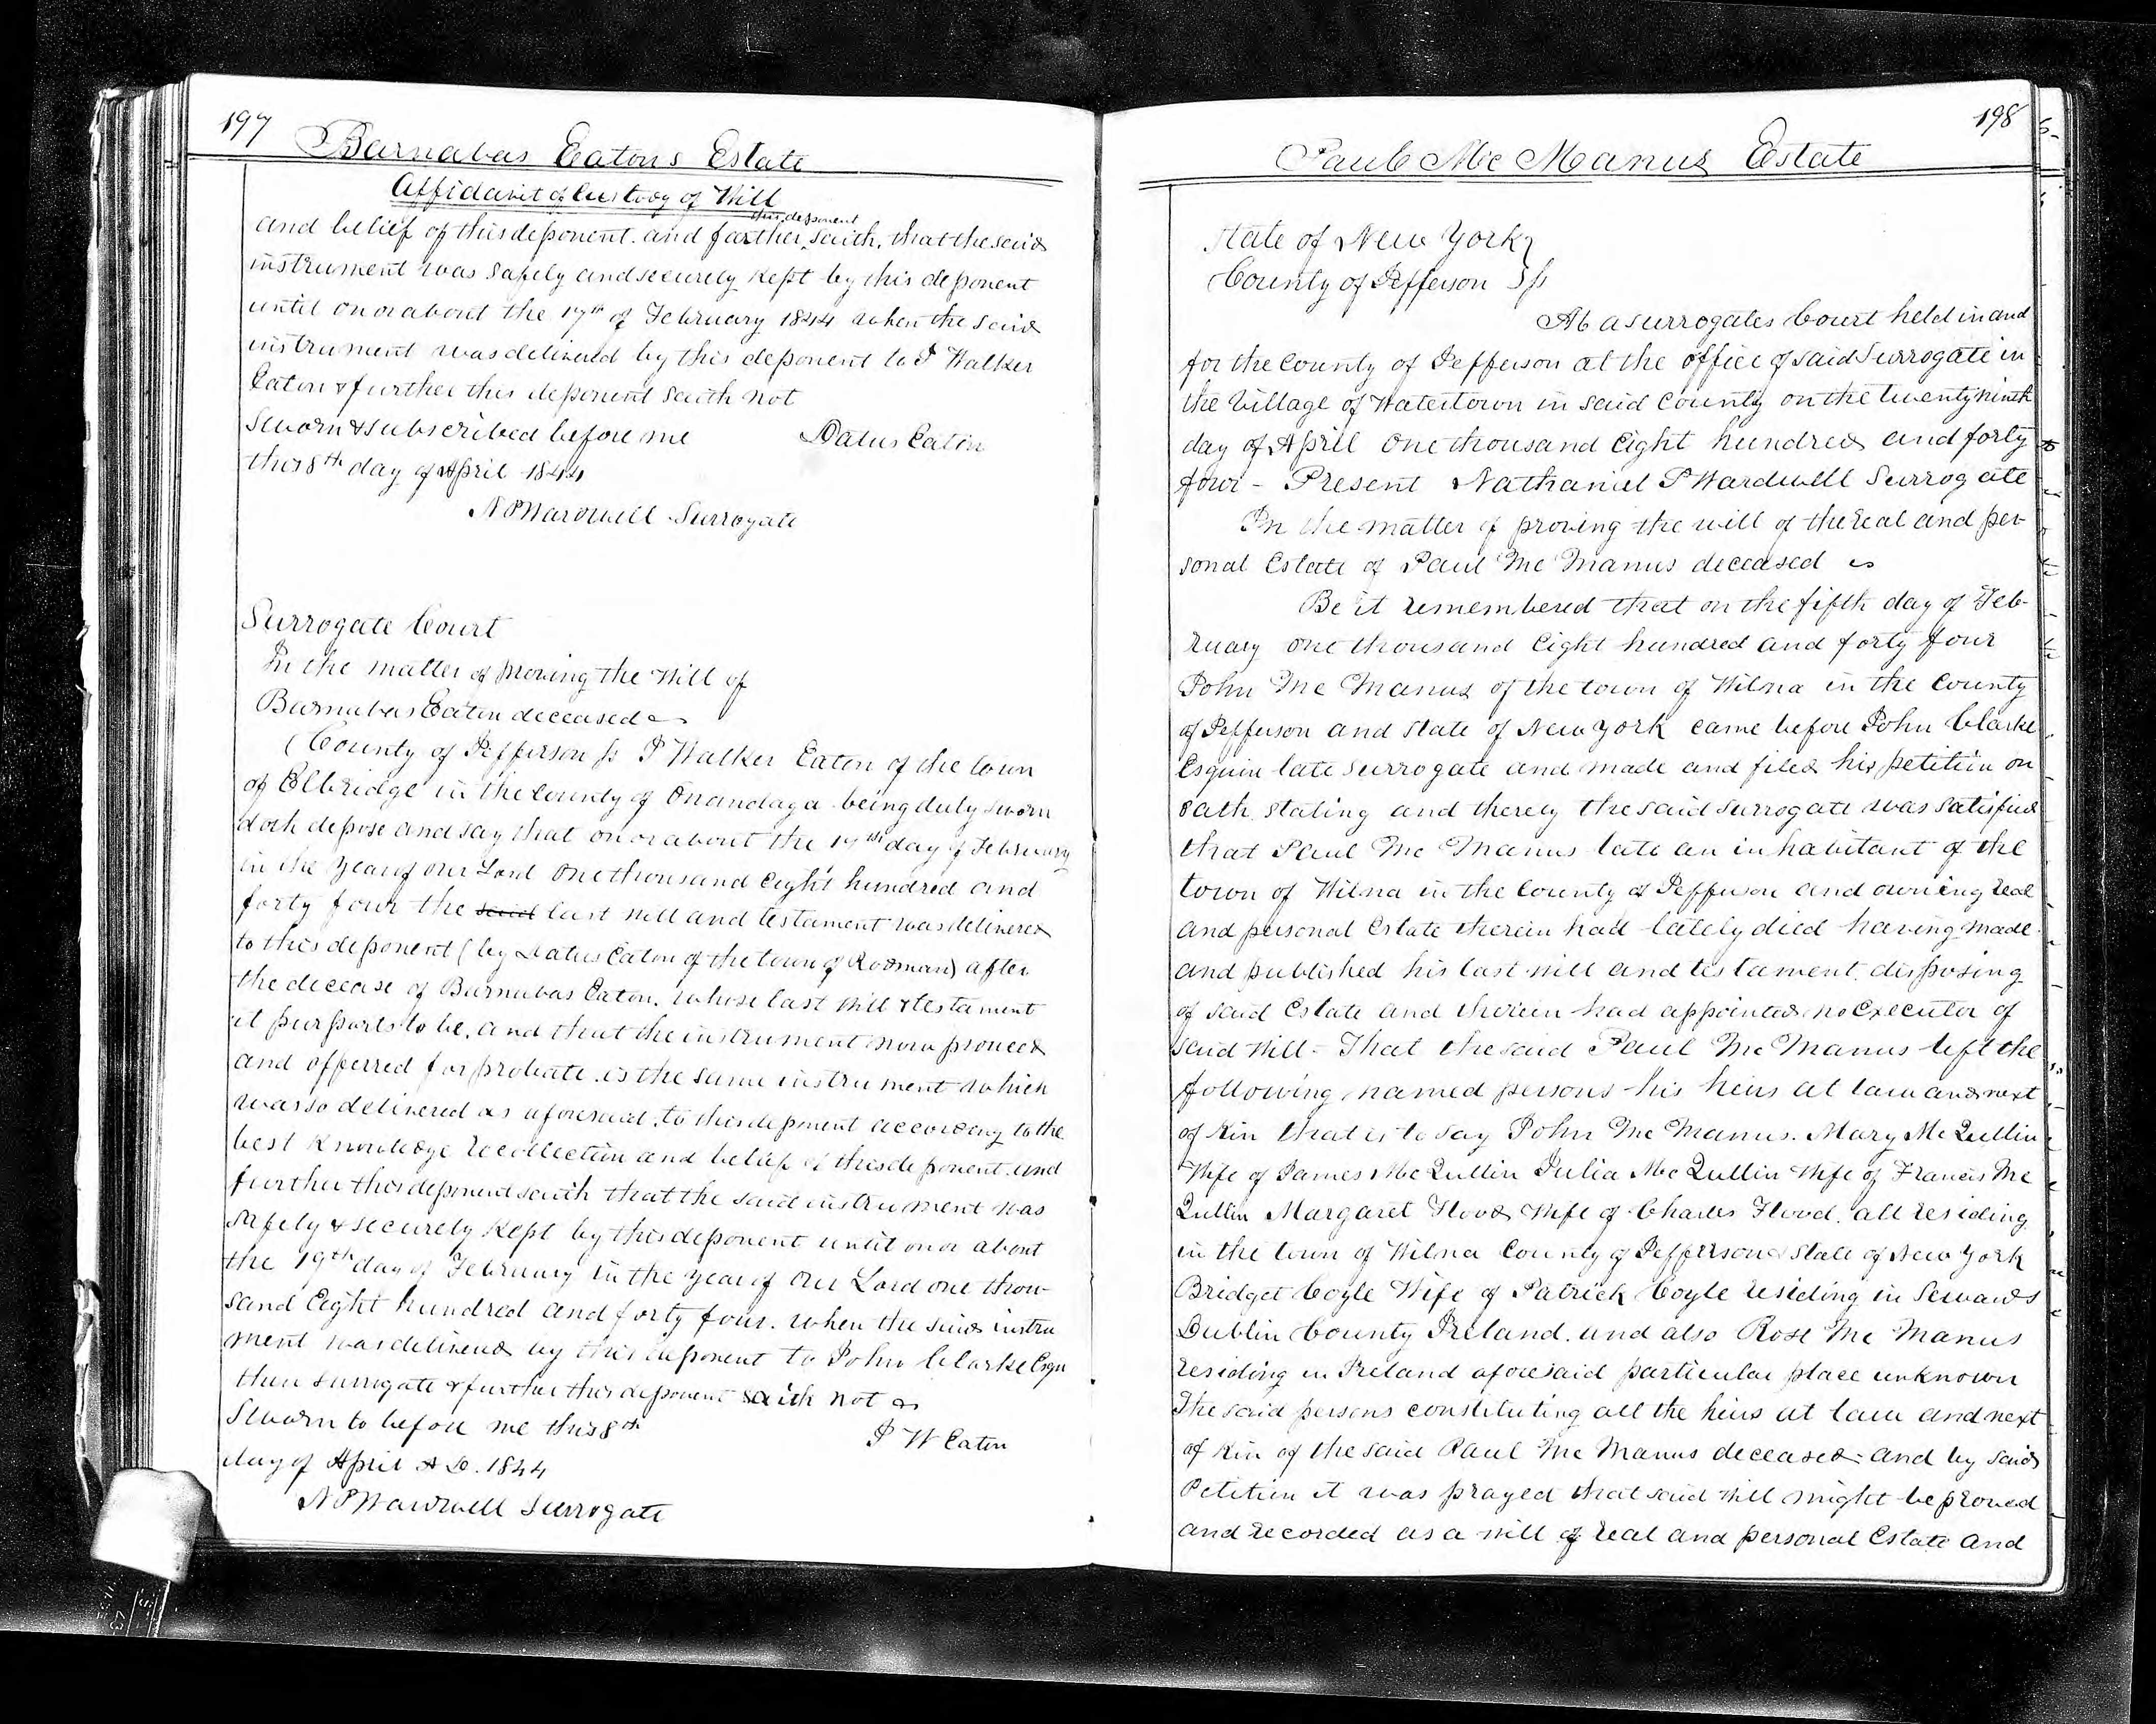 197
Barnabas Eatons Estate
Affidavit of Custody of Will
this deponent
and belief of this deponent. and farther saith, that the said
instrument was safely and securely kept by this deponent
until on or about the 17th of February 1844 when the said
instrument was delivered by this deponent to J Walker
Eaton & further this deponent saith not
Sworn & subscribed before me Datus Eaton
this 8th day of April 1844
N P Wardwell Surrogate
Surrogate Court
In the matter of proving the Will of
Barnabas Eaton deceased
County of Jefferson ss J Walker Eaton of the town
of Elbridge in the County of Onandaga being duly sworn
doth depose and say that on or about the 17th day of February
in the year of our Lord One thousand Eight hundred and
forty four the said last will and testament was delivered
to this deponent (by Datus Eaton of the town of Rodman) after
the decease of Barnabas Eaton. whose last will & testament
it purports to be, and that the instrument now proved
and offerred for probate. is the same instrument which
was so delivered as aforesaid, to this deponent according to the
best knowledge recollection and belief of this deponent. and
further this deponent saith that the said instrument was
safely & securely kept by this deponent until on or about
the 19th day of February in the year of Our Lord one thou-
sand Eight hundred and forty four. when the said instru
ment was delivered by this deponent to John Clarke Esqr
then surrogate & further this deponent saith not
Sworn to before me this 8th J W Eaton
day of April A D. 1844
N P Wardwell Surrogate
198
Paul Mc Manus Estate
State of New York
County of Jefferson ss
At a surrogates Court held in and
for the County of Jefferson at the office of said Surrogate in
the Village of Watertown in said County on the twenty ninth
day of Aprill One thousand Eight hundred and forty
four - Present Nathaniel P Wardwell Surrogate
In the matter of proving the will of the real and per
sonal Estate of Paul Mc Manus deceased
Be it remembered that on the fifth day of Feb-
ruary one thousand Eight hundred and forty four
John Mc Manus of the town of Wilna in the County
of Jefferson and State of New York came before John Clarke
Esquire late surrogate and made and filed his petition on
oath stating and therey the said surrogate was satisfied
that Paul Mc Manus late an inhabitant of the
town of Wilna in the County of Jefferson and owning real
and personal Estate therein had lately died having made
and published his last will and testament. disposing
of said Estate and therein had appointed no Executor of
said Will - That the said Paul Mc Manus left the
following named persons his heirs at law and next
of Kin that is to say John Mc Manus. Mary Mc Qullin
Wife of James Mc Qullin Julia Mc Qullin Wife of Francis Mc
Qullin Margaret Flood Wife of Charles Flood. all residing
in the town of Wilna County of Jefferson & State of New York
Bridget Coyle Wife of Patrick Coyle residing in Sewards
Dublin County Ireland. and also Rose Mc Manus
residing in Ireland aforesaid particular place unknown
The said persons constituting all the heirs at law and next
of Kin of the said Paul Mc Manus deceased - and by said
Petition it was prayed that said Will might be proved
and recorded as a will of real and personal Estate and